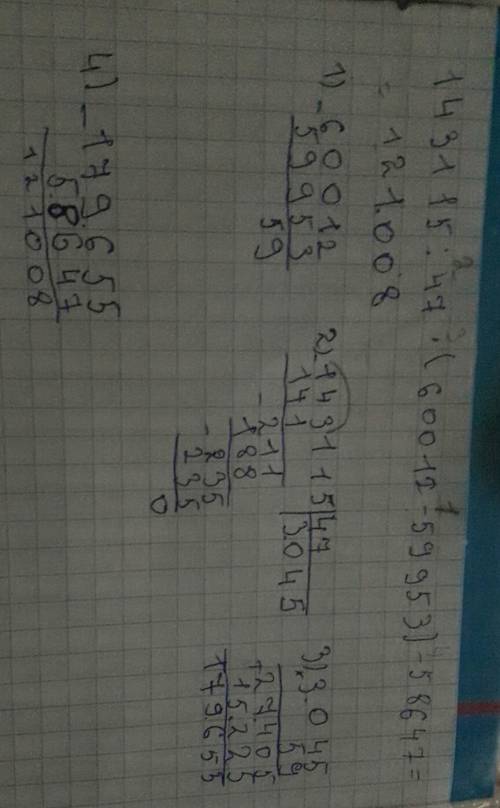 2 3 1
143115:47·(60012-59953)-58647=
= 121.008
1) -60012
59953
59
2) -143115|47
141 3045
-211
188
-235
235
0
3) ×3.045
59
+27.405
15.225
179.655
4) -179.655
58647
121008